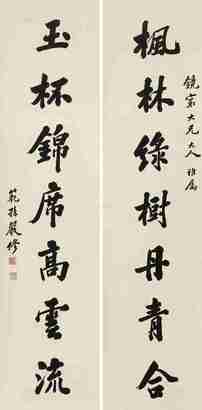 鏡寰大兄大人雅屬
楓林綠樹丹青合
玉杯錦席高雲流
範孫嚴修